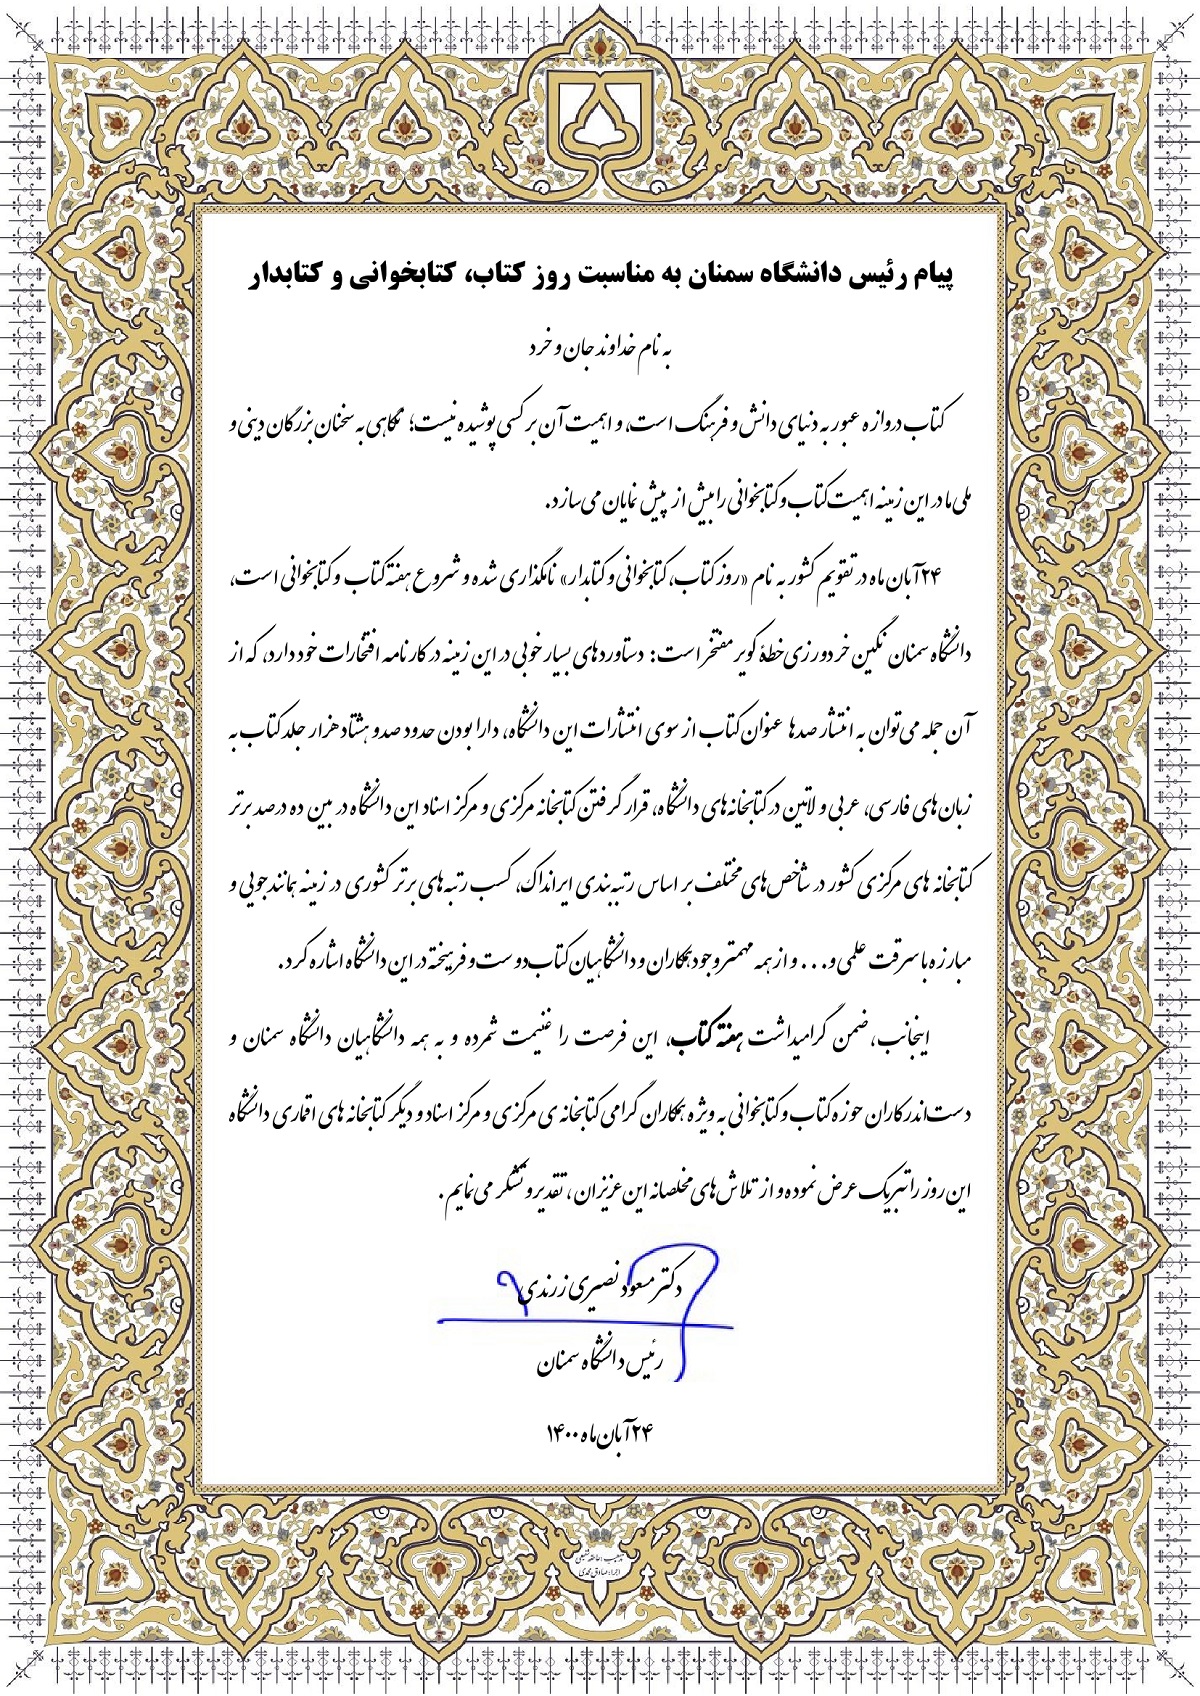 پیام رئیس دانشگاه سمنان به مناسبت روز کتاب، کتابخوانی و کتابدار
به نام خداوند جان و خرد
کتاب دروازه عبور به دنیای دانش و فرهنگ است، و اهمیت آن بر کسی پوشیده نیست؛ نگاهی به سخنان بزرگان دینی و
ملی ما در این زمینه اهمیت کتاب و کتابخوانی را بیش از پیش نمایان می‌سازد.
۲۴ آبان ماه در تقویم کشور به نام «روز کتاب، کتابخوانی و کتابدار» نامگذاری شده و شروع هفته کتاب و کتابخوانی است،
دانشگاه سمنان نگین خردورزی خطهٔ کویر مفتخر است: دستاوردهای بسیار خوبی در این زمینه در کارنامه افتخارات خود دارد، که از
آن جمله می‌توان به انتشار صدها عنوان کتاب از سوی انتشارات این دانشگاه، دارا بودن حدود صد و هشتاد هزار جلد کتاب به
زبان‌های فارسی، عربی و لاتین در کتابخانه‌های دانشگاه، قرار گرفتن کتابخانه مرکزی و مرکز اسناد این دانشگاه در بین ده درصد برتر
کتابخانه های مرکزی کشور در شاخص‌های مختلف بر اساس رتبه‌بندی ایرانداک، کسب رتبه‌های برتر کشوری در زمینه همانندجویی و
مبارزه با سرقت علمی و... و از همه مهمتر وجود همکاران و دانشگاهیان کتاب‌دوست و فرهیخته در این دانشگاه اشاره کرد.
اینجانب، ضمن گرامیداشت هفته کتاب، این فرصت را غنیمت شمرده و به همه دانشگاهیان دانشگاه سمنان و
دست‌اندرکاران حوزه کتاب و کتابخوانی به ویژه همکاران گرامی کتابخانه ی مرکزی و مرکز اسناد و دیگر کتابخانه های اقماری دانشگاه
این روز را تبریک عرض نموده و از تلاش‌های مخلصانه این عزیزان، تقدیر و تشکر می‌نمایم.
دکتر مسعود نصیری زرندی
رئیس دانشگاه سمنان
۲۴ آبان ماه ۱۴۰۰